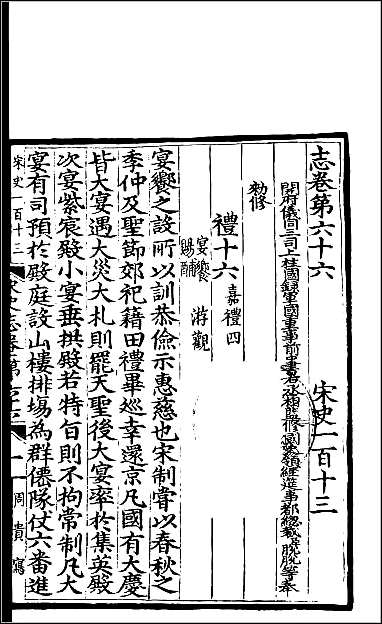 志卷第六十六　宋史一百十三
開府儀同三司上柱國錄軍國重事前中書右丞相監修國史領經筵事都總裁脫脫等奉
勅修
禮十六 嘉禮四
宴饗　游觀
賜酺
宴饗之設所以訓恭儉示惠慈也宋制嘗以春秋之
季仲及聖節郊祀籍田禮畢巡幸還京凡國有大慶
皆大宴遇大災大札則罷天聖後大宴率於集英殿
次宴紫宸殿小宴垂拱殿若特旨則不拘常制凡大
宴有司預於殿庭設山樓排塲為群僊隊仗六番進
宋史一百十三
一
周貴寫